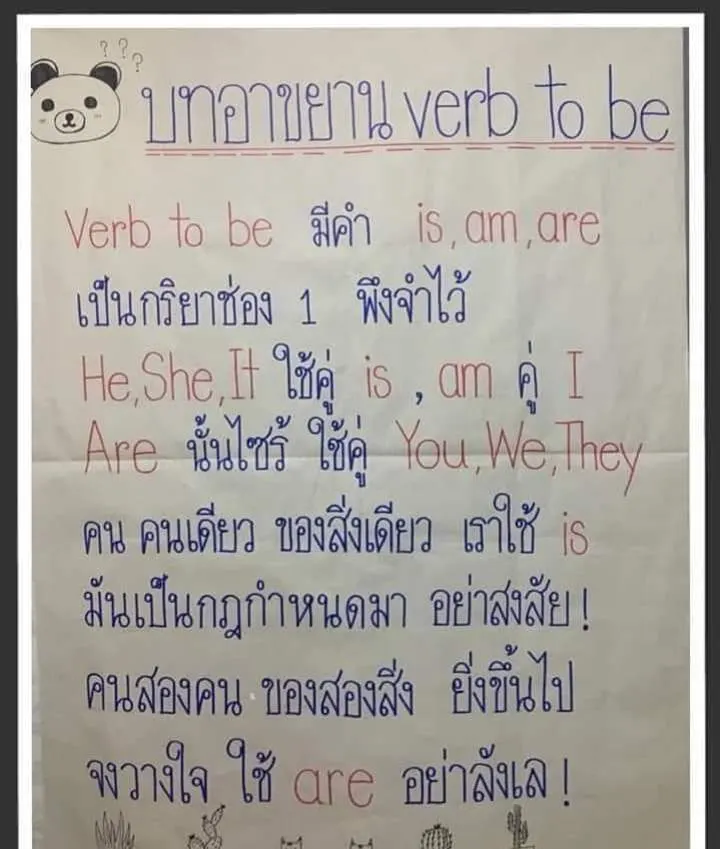 ? ? ?
บทอาขยาน verb to be
Verb to be มีคำ is, am, are
เป็นกริยาช่อง 1 พึงจำไว้
He, She, It ใช้คู่ is , am คู่ I
Are นั้นไซร้ ใช้คู่ You, We, They
คน คนเดียว ของสิ่งเดียว เราใช้ is
มันเป็นกฎกำหนดมา อย่าสงสัย !
คนสองคน ของสองสิ่ง ยิ่งขึ้นไป
จงวางใจ ใช้ are อย่าลังเล !